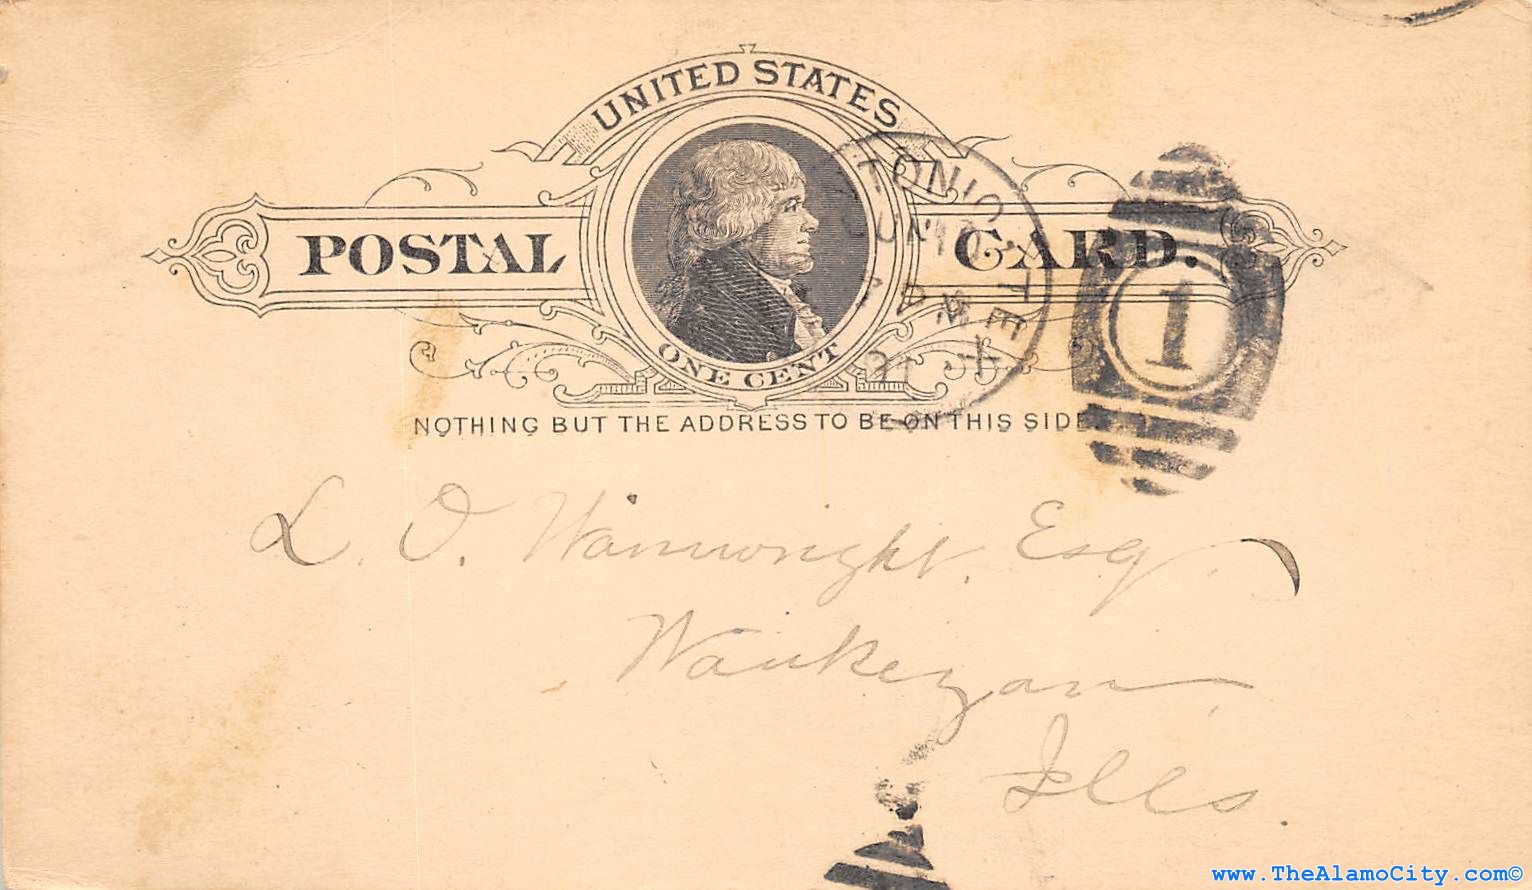 UNITED STATES
POSTAL CARD.
ONE CENT
NOTHING BUT THE ADDRESS TO BE ON THIS SIDE.
TONIO TEX
JUN
AM
91
1
L. O. Wainwright, Esq.
Waukegan,
Ills.
www.TheAlamoCity.com©